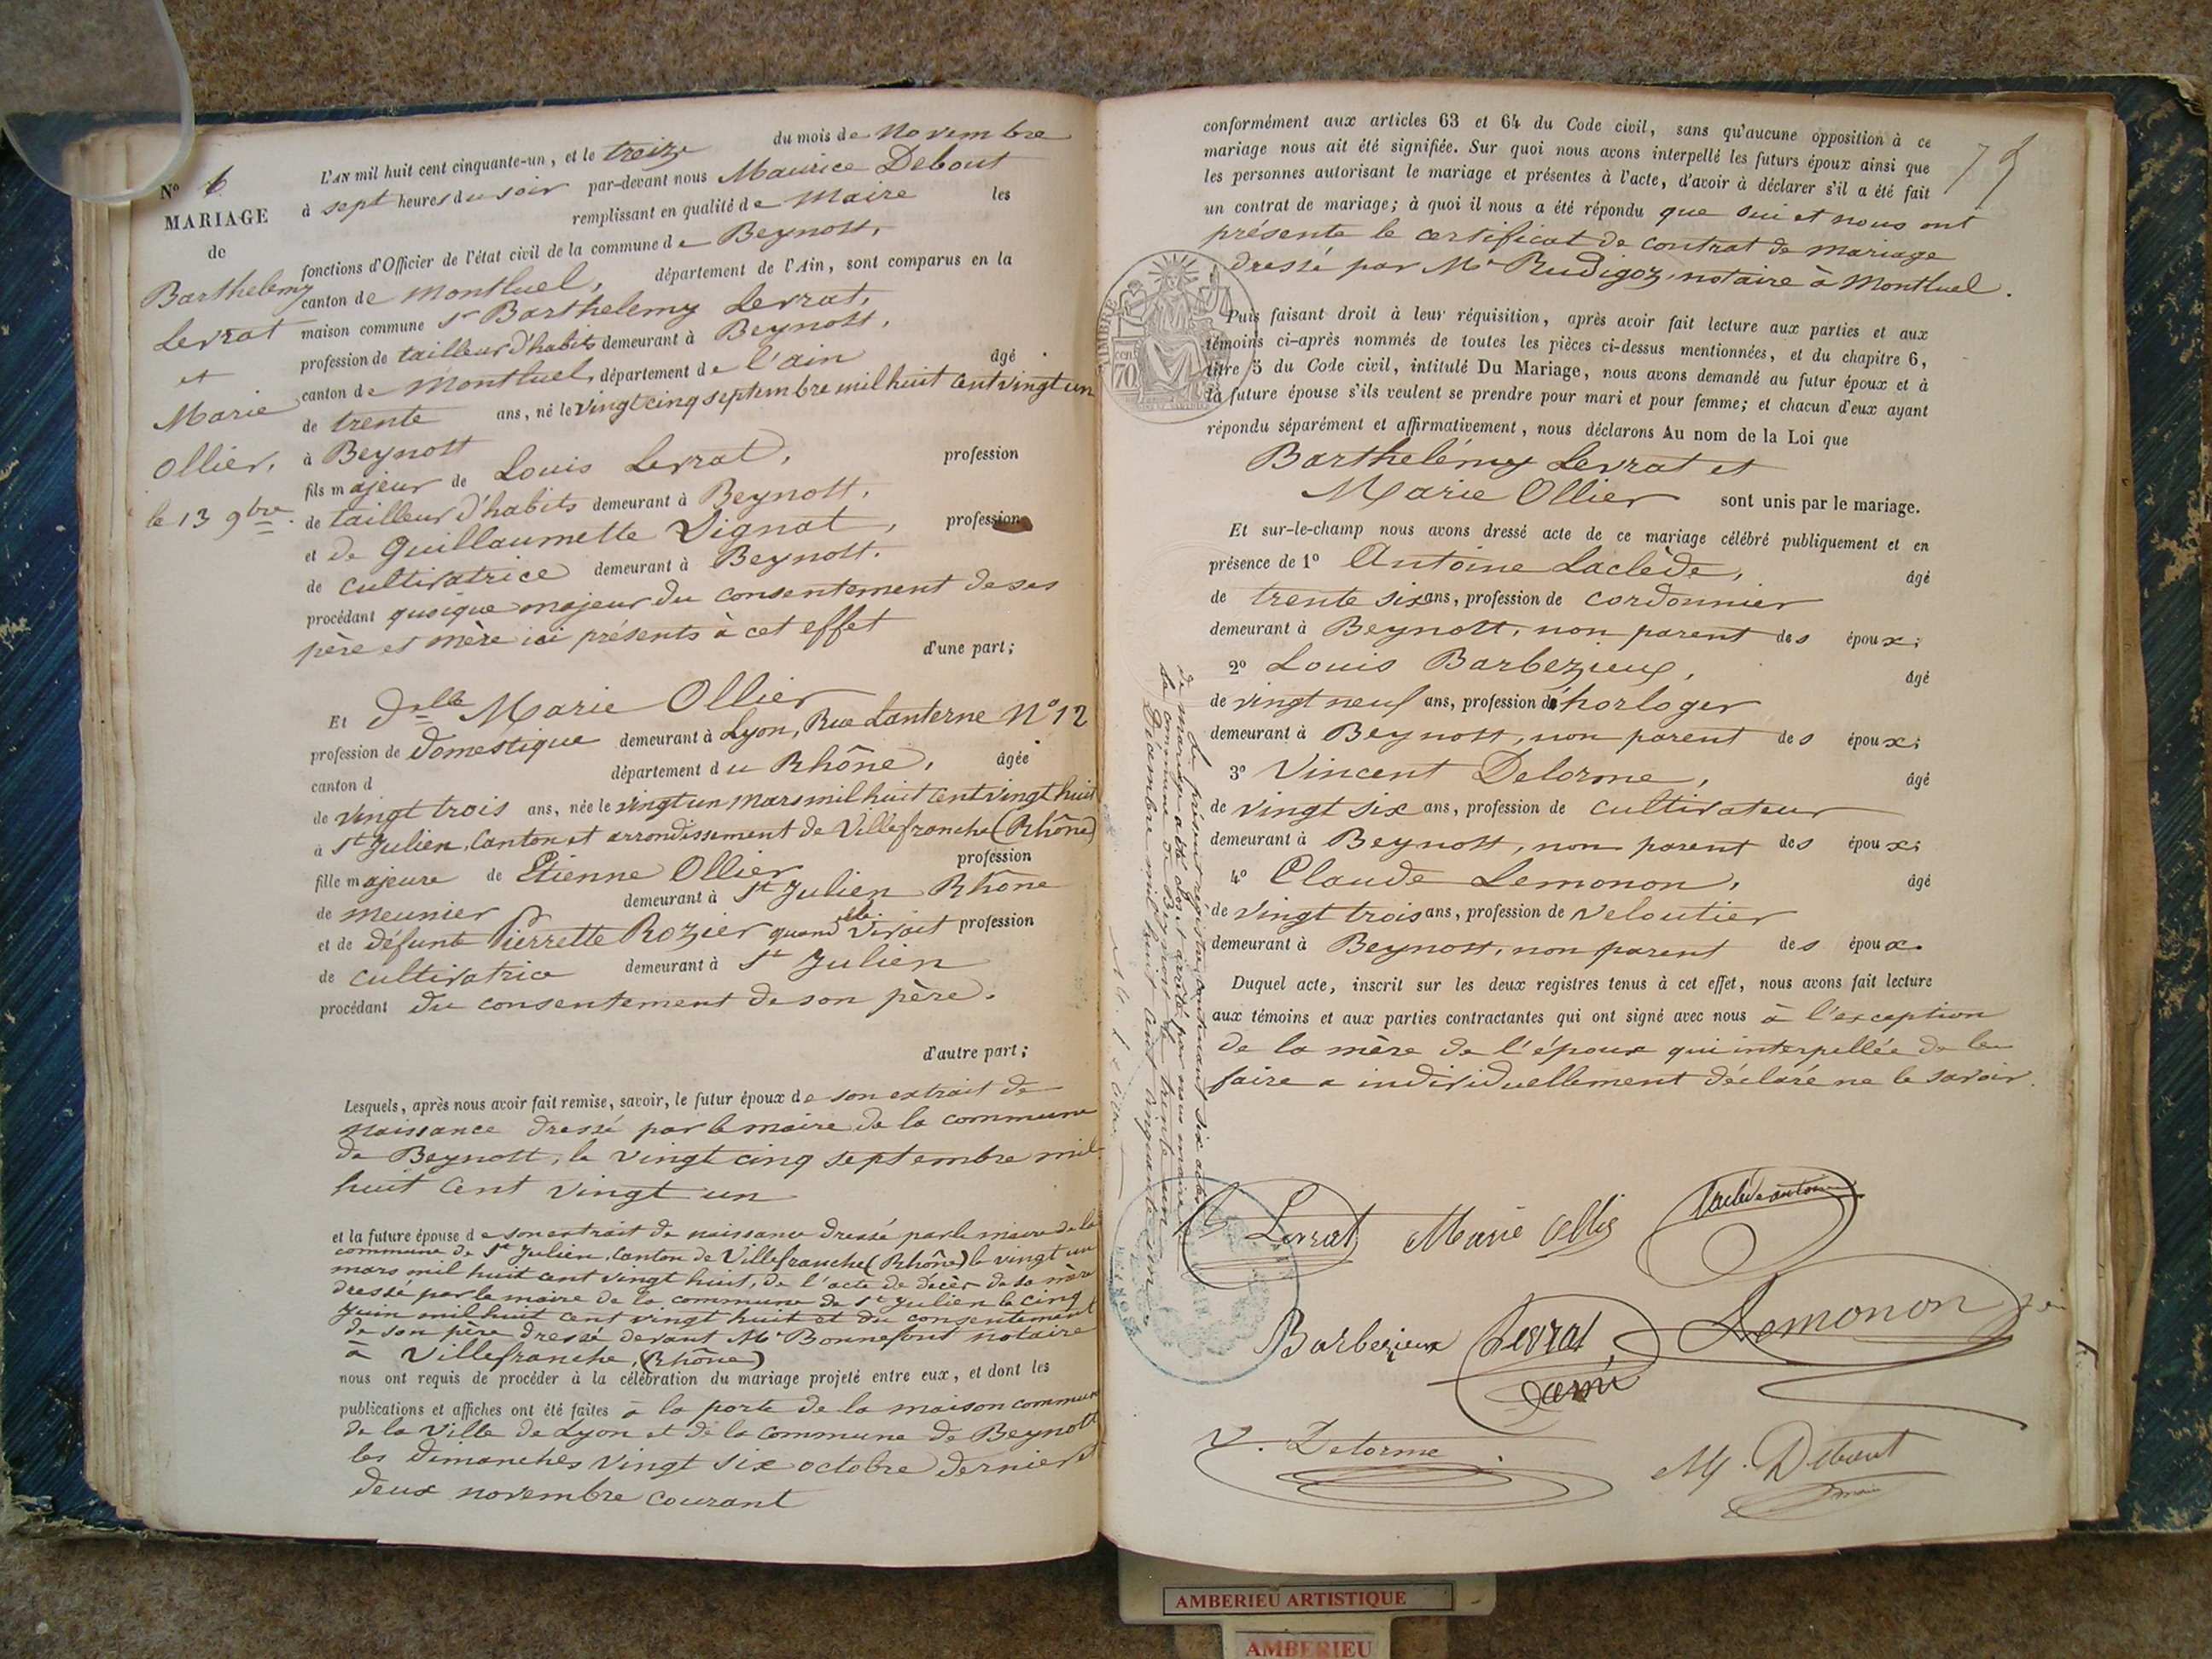 L'AN mil huit cent cinquante-un, et le treize du mois de Novembre
à sept heures du soir par-devant nous Maurice Debout
remplissant en qualité de Maire les
fonctions d'Officier de l'état civil de la commune de Beynost,
canton de Montluel, département de l'Ain, sont comparus en la
maison commune Sr Barthelemy Levrat,
profession de tailleur d'habits demeurant à Beynost,
canton de Montluel, département de l'ain âgé
de trente ans, né le vingt cinq septembre mil huit cent vingt un
à Beynost
fils majeur de Louis Levrat, profession
de tailleur d'habits demeurant à Beynost,
et de Guillaumette Dignat, profession
de cultivatrice demeurant à Beynost.
procédant quoique majeur du consentement de ses
père et mère ici présents à cet effet
d'une part;
Et Dlle Marie Ollier
profession de domestique demeurant à Lyon, Rue Lanterne N° 12
canton d département du Rhône, âgée
de vingt trois ans, née le vingt un mars mil huit cent vingt huit
à St Julien, Canton et arrondissement de Villefranche (Rhône)
fille majeure de Etienne Ollier profession
de meunier demeurant à St Julien Rhône
et de défunte Pierrette Rozier quand elle vivait profession
de cultivatrice demeurant à St Julien
procédant du consentement de son père.
d'autre part;
Lesquels, après nous avoir fait remise, savoir, le futur époux de son extrait de
naissance dressé par le maire de la commune
de Beynost, le vingt cinq septembre mil
huit cent vingt un
et la future épouse de son extrait de naissance dressé par le maire de la
commune de St Julien, Canton de Villefranche (Rhône) le vingt un
mars mil huit cent vingt huit, de l'acte de décès de sa mère
dressé par le maire de la commune de St Julien le cinq
juin mil huit cent vingt huit et du consentement
de son père dressé devant Me Bonnefont notaire
à Villefranche, (Rhône)
nous ont requis de procéder à la célébration du mariage projeté entre eux, et dont les
publications et affiches ont été faites à la porte de la maison commune
de la Ville de Lyon et de la commune de Beynost
les dimanches vingt six octobre dernier et
deux novembre courant
N° 6
MARIAGE
de
Barthelemy
Levrat
et
Marie
Ollier,
le 13 9bre.
75
conformément aux articles 63 et 64 du Code civil, sans qu'aucune opposition à ce
mariage nous ait été signifiée. Sur quoi nous avons interpellé les futurs époux ainsi que
les personnes autorisant le mariage et présentes à l'acte, d'avoir à déclarer s'il a été fait
un contrat de mariage; à quoi il nous a été répondu que oui et nous ont
présente le certificat de contrat de mariage
dressé par Me Rudigoz, notaire à Montluel.
TIMBRE
70 cent
Puis faisant droit à leur réquisition, après avoir fait lecture aux parties et aux
témoins ci-après nommés de toutes les pièces ci-dessus mentionnées, et du chapitre 6,
titre 5 du Code civil, intitulé Du Mariage, nous avons demandé au futur époux et à
la future épouse s'ils veulent se prendre pour mari et pour femme; et chacun d'eux ayant
répondu séparément et affirmativement, nous déclarons Au nom de la Loi que
Barthelémy Levrat et
Marie Ollier sont unis par le mariage.
Et sur-le-champ nous avons dressé acte de ce mariage célébré publiquement et en
présence de 1° Antoine Laclède, âgé
de trente six ans, profession de cordonnier
demeurant à Beynost, non parent des époux;
2° Louis Barbezieux, âgé
de vingt neuf ans, profession d'horloger
demeurant à Beynost, non parent des époux;
3° Vincent Delorme, âgé
de vingt six ans, profession de cultivateur
demeurant à Beynost, non parent des époux;
4° Claude Lemonon, âgé
de vingt trois ans, profession de veloutier
demeurant à Beynost, non parent des époux.
Duquel acte, inscrit sur les deux registres tenus à cet effet, nous avons fait lecture
aux témoins et aux parties contractantes qui ont signé avec nous à l'exception
de la mère de l'époux qui interpellée de le
faire a individuellement déclaré ne le savoir.
Le présent registre contenant six actes
de mariage a été clos et arrêté par nous maire de
la commune de Beynost le trente un
Décembre mil huit cent cinquante un.
Levrat Marie Ollie Laclède antoine
Barbezieux Levrat Lemonon
V. Delorme M. Debout
maire
AMBERIEU ARTISTIQUE
AMBERIEU